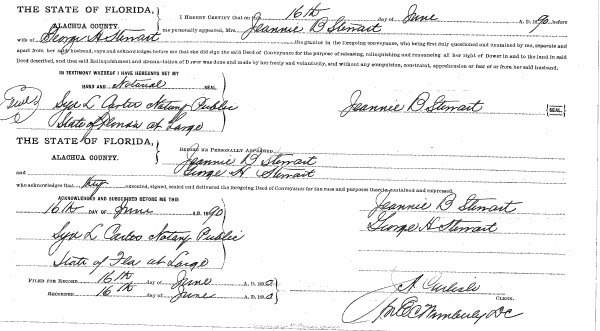 THE STATE OF FLORIDA,
ALACHUA COUNTY.
I HEREBY CERTIFY that on this 16th day of June A. D. 1890, before
me personally appeared, Mrs. Jeannie B Stewart
wife of George H Stewart the grantor in the foregoing conveyance, who being first duly questioned and examined by me, separate and
apart from her said husband, says and acknowledges before me that she did sign the said Deed of Conveyance for the purpose of releasing, relinquishing and renouncing all her right of Dower in and to the land in said
Deed described, and that said Relinquishment and Renunciation of Dower was done and made by her freely and voluntarily, and without any compulsion, constraint, apprehension or fear of or from her said husband.
IN TESTIMONY WHEREOF I HAVE HEREUNTO SET MY
HAND AND Notarial SEAL
Seal
Syd L Carter Notary Public
State of Florida at Large
Jeannie B Stewart SEAL
THE STATE OF FLORIDA,
ALACHUA COUNTY.
BEFORE ME PERSONALLY APPEARED
Jeannie B Stewart
and George H Stewart
who acknowledges that they executed, signed, sealed and delivered the foregoing Deed of Conveyance for the uses and purposes therein contained and expressed.
ACKNOWLEDGED AND SUBSCRIBED BEFORE ME THIS
16th DAY OF June A.D. 1890
Jeannie B Stewart
George H Stewart
Syd L Carter Notary Public
State of Fla at Large
FILED FOR RECORD 16th day of June A. D. 1890
RECORDED 16th day of June A. D. 1890
J A Carlisle
CLERK.
Per E C Wimberly DC